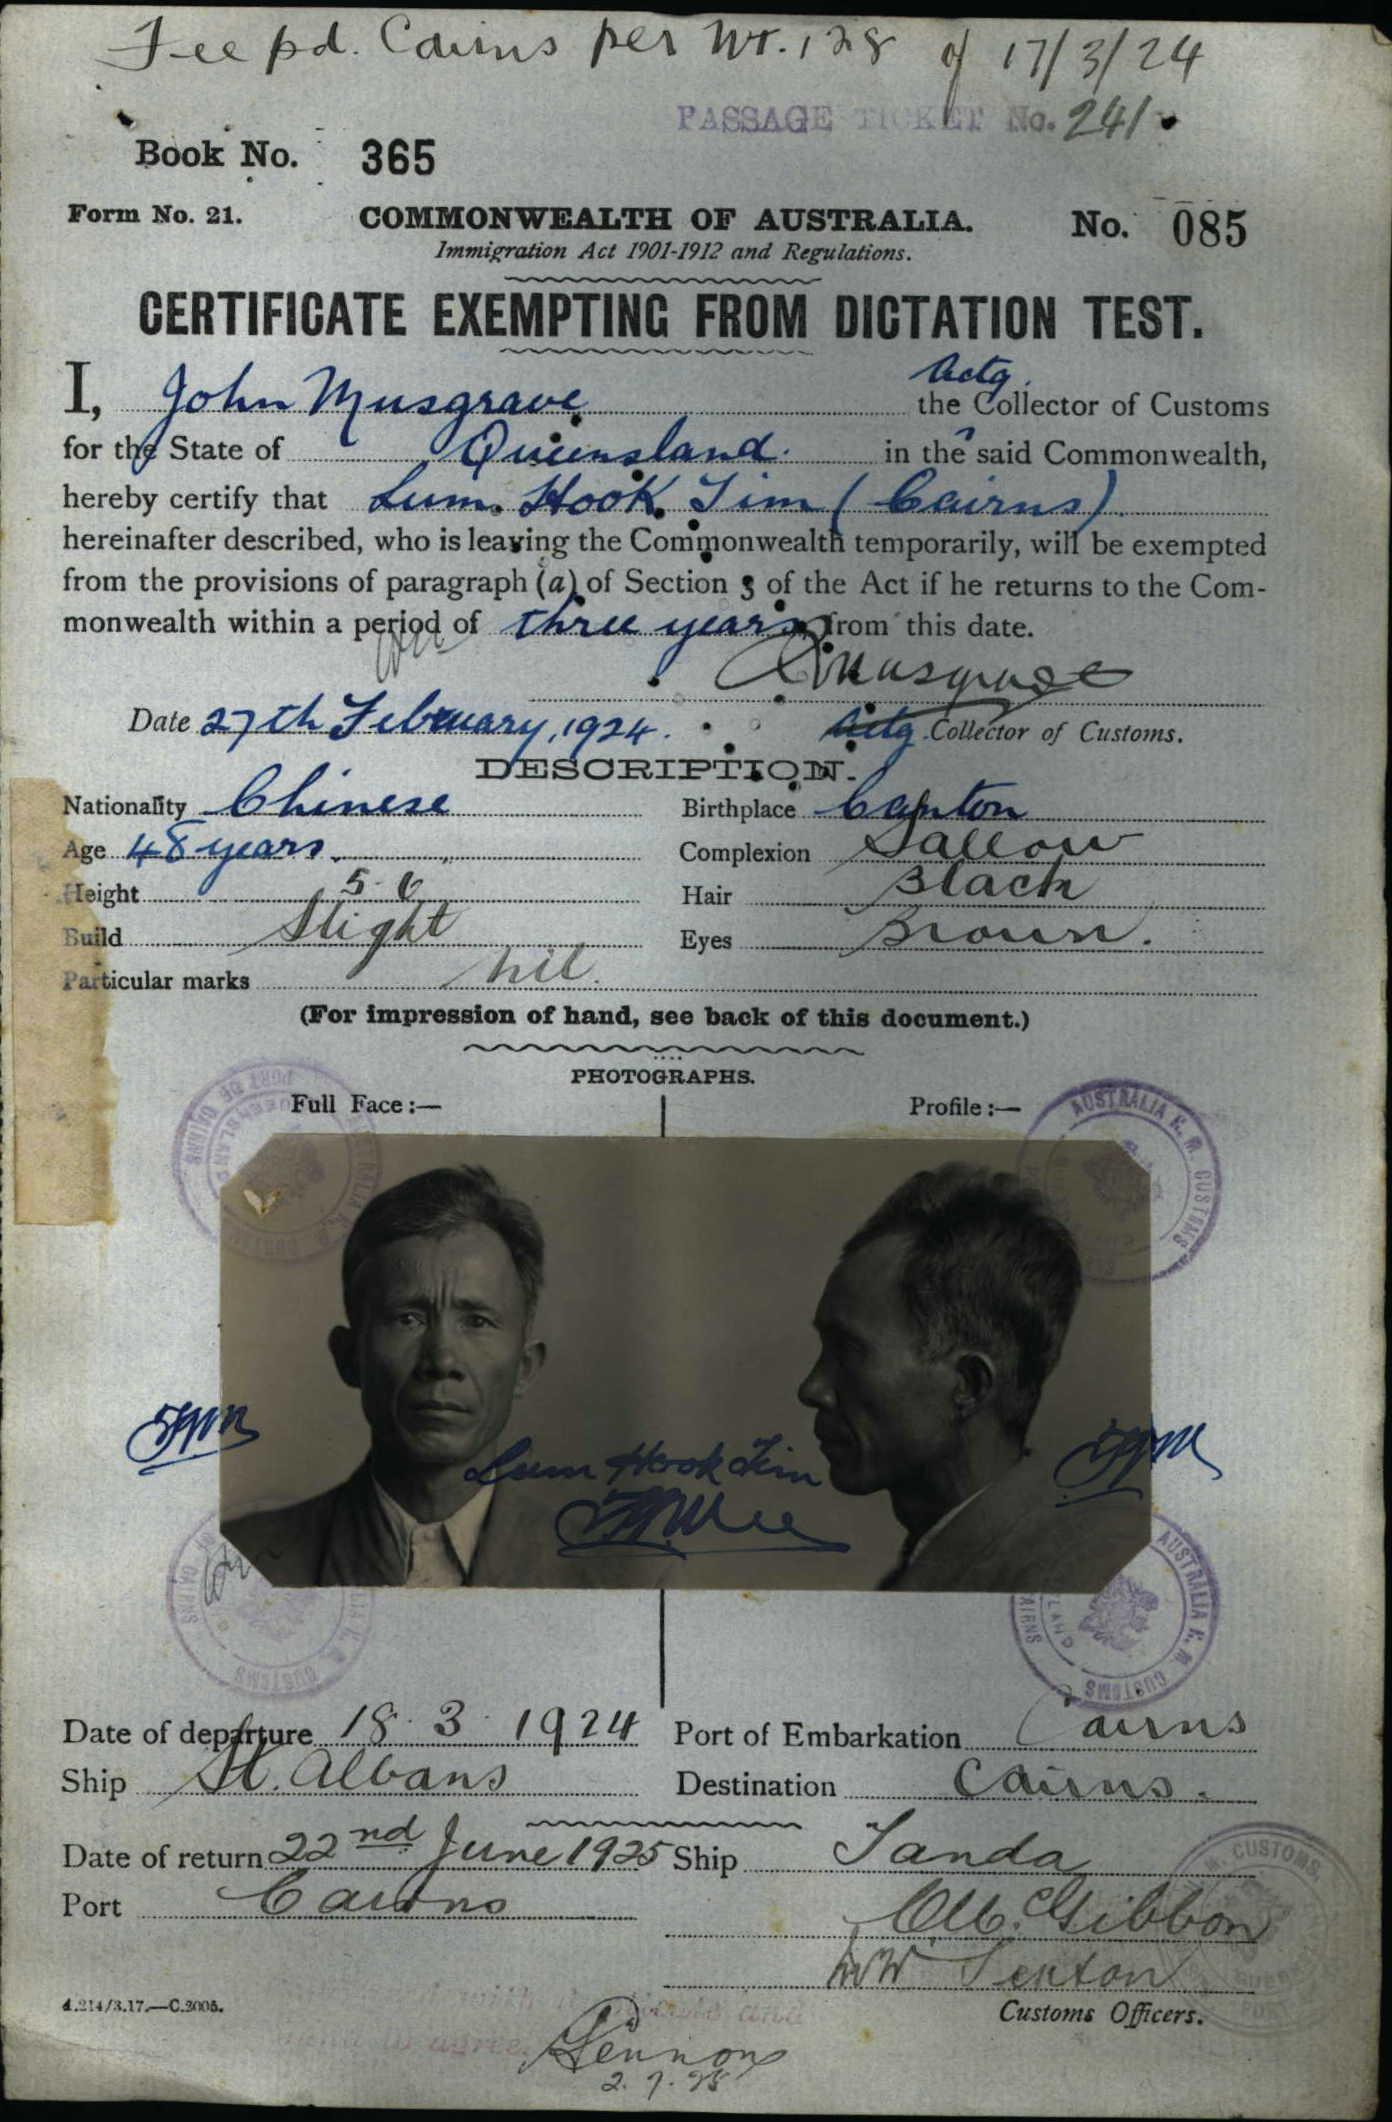 Fee pd. Cairns per Wt. 128 of 17/3/24
PASSAGE TICKET No. 241
Book No. 365
Form No. 21. COMMONWEALTH OF AUSTRALIA. No. 085
Immigration Act 1901-1912 and Regulations.
CERTIFICATE EXEMPTING FROM DICTATION TEST.
I, John Musgrave Actg. the Collector of Customs
for the State of Queensland. in the said Commonwealth,
hereby certify that Lum Hook Tim (Cairns)
hereinafter described, who is leaving the Commonwealth temporarily, will be exempted
from the provisions of paragraph (a) of Section 3 of the Act if he returns to the Com-
monwealth within a period of three years from this date.
Musgrave
Date 27th February, 1924. Actg. Collector of Customs.
DESCRIPTION.
Nationality Chinese Birthplace Canton
Age 48 years Complexion Sallow
Height 5-6 Hair Black
Build Slight Eyes Brown.
Particular marks nil.
(For impression of hand, see back of this document.)
PHOTOGRAPHS.
Full Face:— Profile:—
PORT OF CAIRNS
AUSTRALIA H. M. CUSTOMS
Lum Hook Tim
AUSTRALIA H. M. CUSTOMS
Date of departure 18.3.1924 Port of Embarkation Cairns
Ship St. Albans Destination Cairns.
Date of return 22nd June 1925 Ship Tanda
Port Cairns
McGibbon
Sexton
Customs Officers.
Lennox
2.7.25